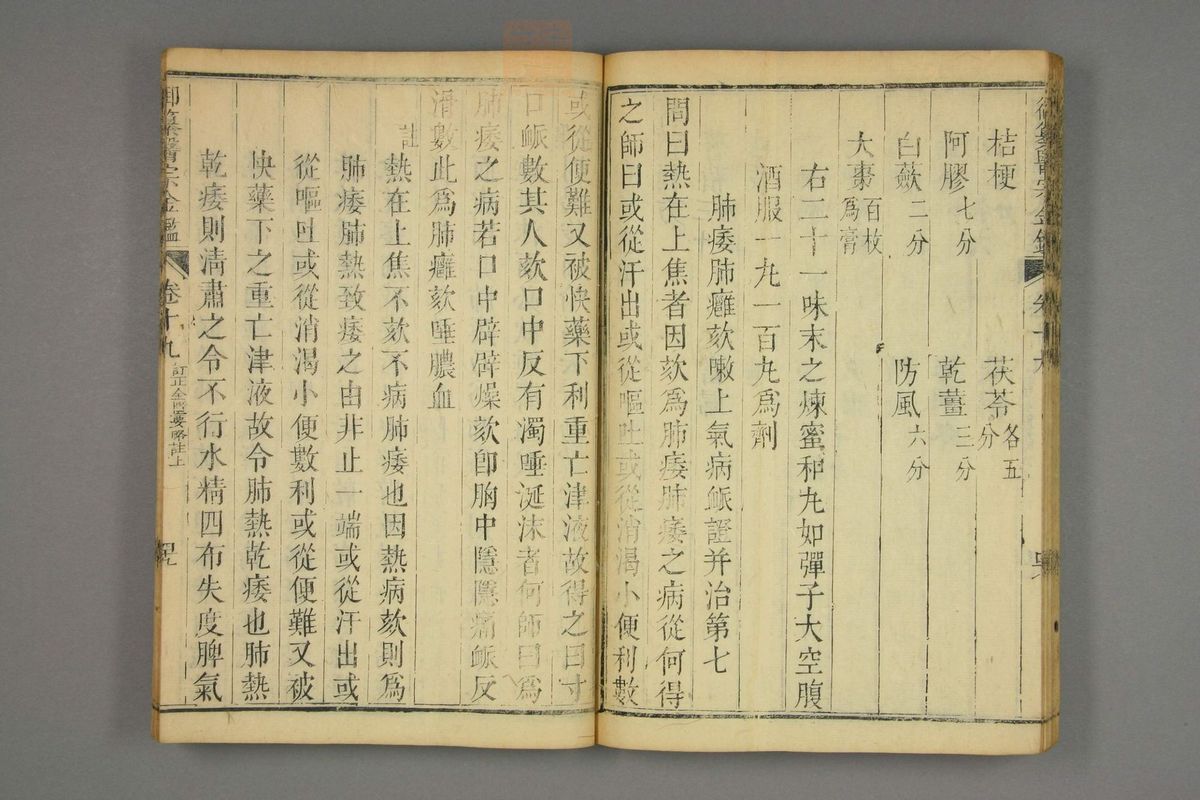 桔梗 茯苓各五分
阿膠七分 乾薑三分
白蘞二分 防風六分
大棗百枚為膏
右二十一味末之煉蜜和丸如彈子大空腹
酒服一丸一百丸為劑
肺痿肺癰欬嗽上氣病脈證并治第七
問曰熱在上焦者因欬為肺痿肺痿之病從何得
之師曰或從汗出或從嘔吐或從消渴小便利數
或從便難又被快藥下利重亡津液故得之曰寸
口脈數其人欬口中反有濁唾涎沫者何師曰為
肺痿之病若口中辟辟燥欬即胸中隱隱痛脈反
滑數此為肺癰欬唾膿血
註
熱在上焦不欬不病肺痿也因熱病欬則為
肺痿肺熱致痿之由非止一端或從汗出或
從嘔吐或從消渴小便數利或從便難又被
快藥下之重亡津液故令肺熱乾痿也肺熱
乾痿則清肅之令不行水精四布失度脾氣
御纂醫宗金鑑 卷十九 訂正金匱要略註上